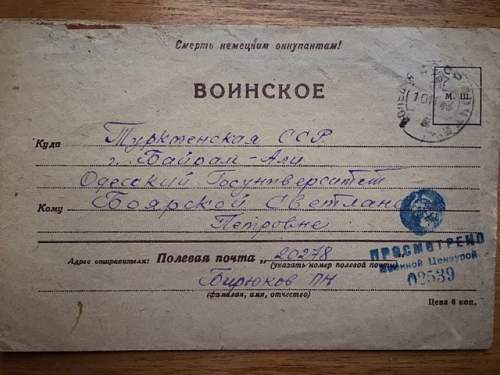 Смерть немецким оккупантам!
ВОИНСКОЕ
М. Ш.
Куда Туркменская ССР
г. Байрам-Али
Одесский Госуниверситет
Кому Боярской Светлане
Петровне
Адрес отправителя: Полевая почта „20278
(указать номер полевой почты)
Бирюков ПН
(фамилия, имя, отчество)
ПРОСМОТРЕНО
Военной Цензурой
02539
Цена 6 коп.